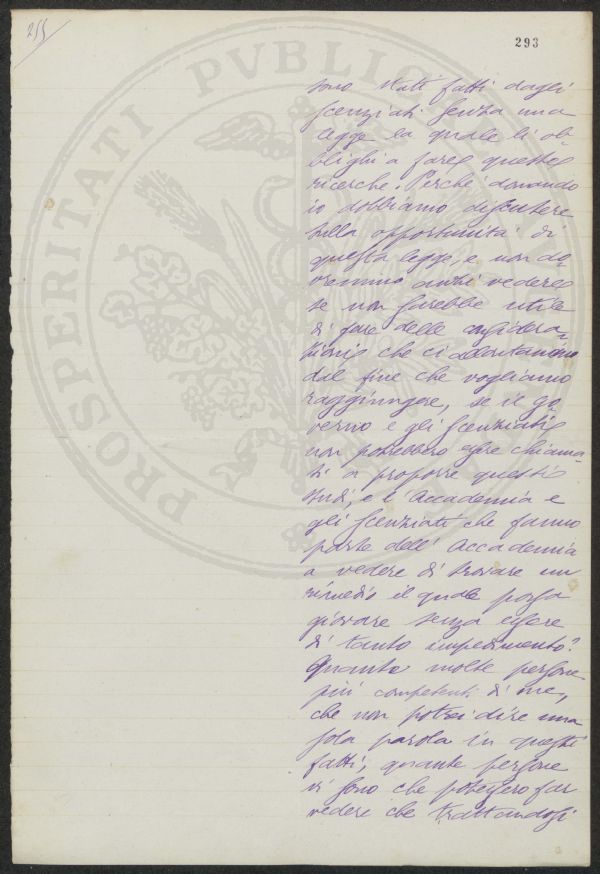 255
293
PROSPERITATI PVBLICAE
sono stati fatti dagli
scenziati senza una
legge la quale li ob-
blighi a fare queste
ricerche. Perchè, domando
io dobbiamo discutere
sulla opportunità di
questa legge, e non do-
vremmo anzi vedere
se non sarebbe utile
di fare delle considera-
zioni che ci allontanino
dal fine che vogliamo
raggiungere, se il go-
verno e gli scenziati
non potrebbero essere chiama-
ti a proporre questi
studi, e l'Accademia e
gli scenziati che fanno
parte dell'Accademia
a vedere di trovare un
rimedio il quale possa
giovare senza essere
di tanto impedimento?
Quante molte persone
più competenti di me,
che non potrei dire una
sola parola in questi
fatti, quante persone
vi sono che potessero far
vedere che trattandosi